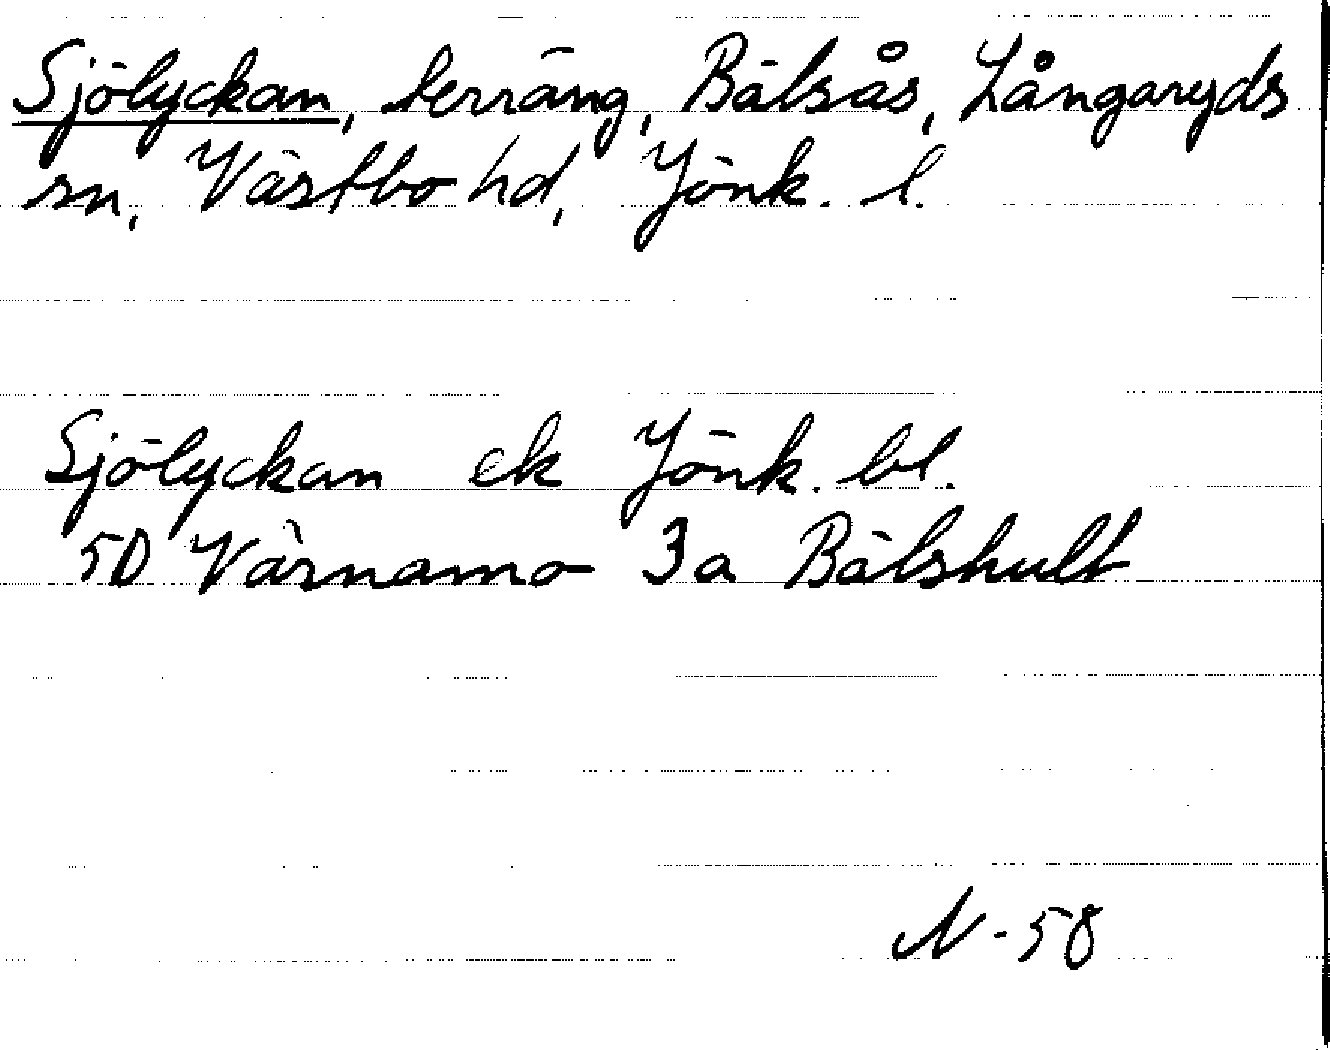 Sjölyckan, terräng, Bälsås, Långaryds
sn, Västbo hd, Jönk. l.
Sjölyckan ek Jönk. bl.
5D Värnamo 3a Bälshult
N-58